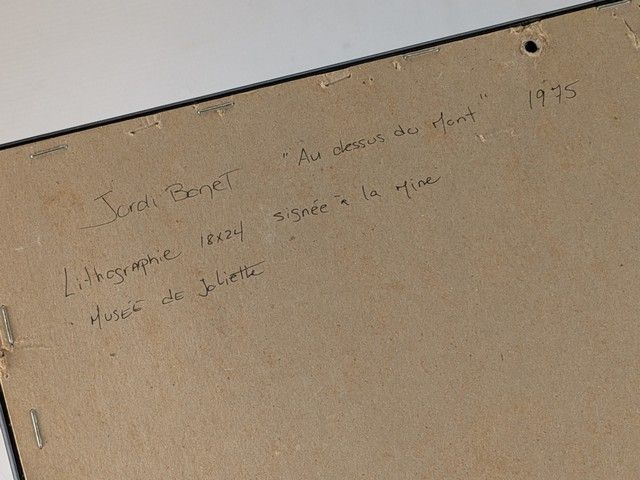 Jordi Bonet "Au dessus du Mont" 1975
Lithographie 18x24 signée à la Mine
Musée de Joliette